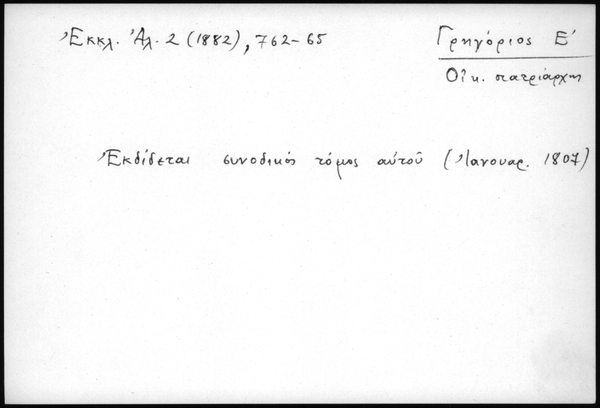 Ἐκκλ. Ἀλ. 2 (1882), 762-65
Γρηγόριος Ε'
Οἰκ. πατριάρχης
Ἐκδίδεται συνοδικός τόμος αὐτοῦ (Ἰανουαρ. 1807)